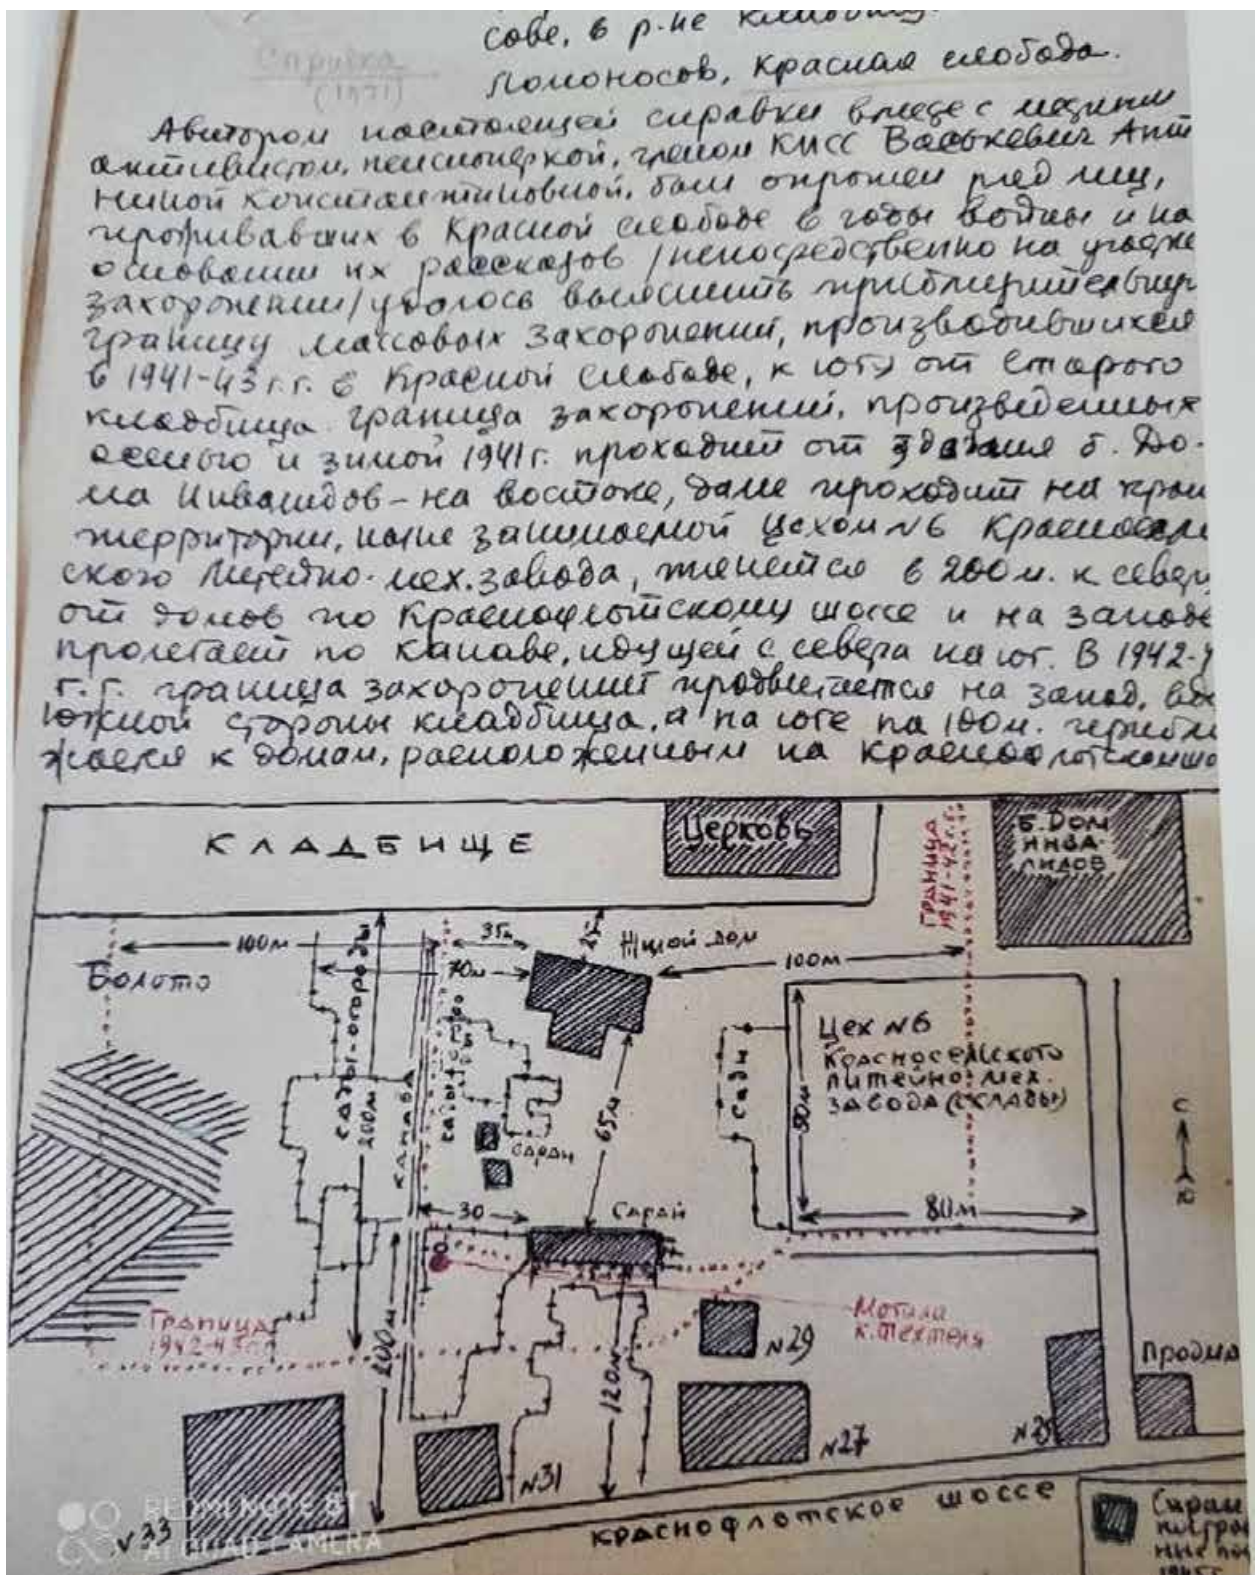 сове, в р-не
Ломоносов, Красная слобода.
Справка
(1971)
Автором настоящей справки вместе с
активистом, пенсионеркой, членом КПСС Васькевич
Константиновной, был опрошен ряд лиц,
проживавших в Красной слободе в годы войны и на
основании их рассказов /непосредственно на участке
захоронений/ удалось выяснить
границу массовых захоронений, производившихся
в 1941-43 г.г. в Красной слободе, к югу от старого
кладбища. граница захоронений, произведенных
осенью и зимой 1941 г. проходит от здания б. До-
ма Инвалидов - на востоке, далее проходит на
территории, ныне занимаемой Цехом №6
ского Литейно-мех. завода, тянется в 200 м. к
от домов по Краснофлотскому шоссе и на
пролегает по канаве, идущей с севера на юг. В 1942-
г.г. граница захоронений продвигается на запад,
южной стороны кладбища, а на юге на 100 м.
жается к домам, расположенным на
КЛАДБИЩЕ
Церковь
ГРАНИЦА
1941-42 г.г.
б. Дом
инва-
лидов
100м
35м
25м
Жилой дом
100м
Болото
70м
сады-огороды
200м
КАНАВА
сады
65м
сараи
сады
90м
Цех №6
Красносельского
литейно-мех.
завода (склады)
80м
С
Ю
30
Сарай
Граница
1942-43
200м
120м
Могила
к. Техтеля
№29
Продма
№33
№31
№27
№25
КРАСНОФЛОТСКОЕ ШОССЕ
REDMI NOTE 8T
AI QUAD CAMERA